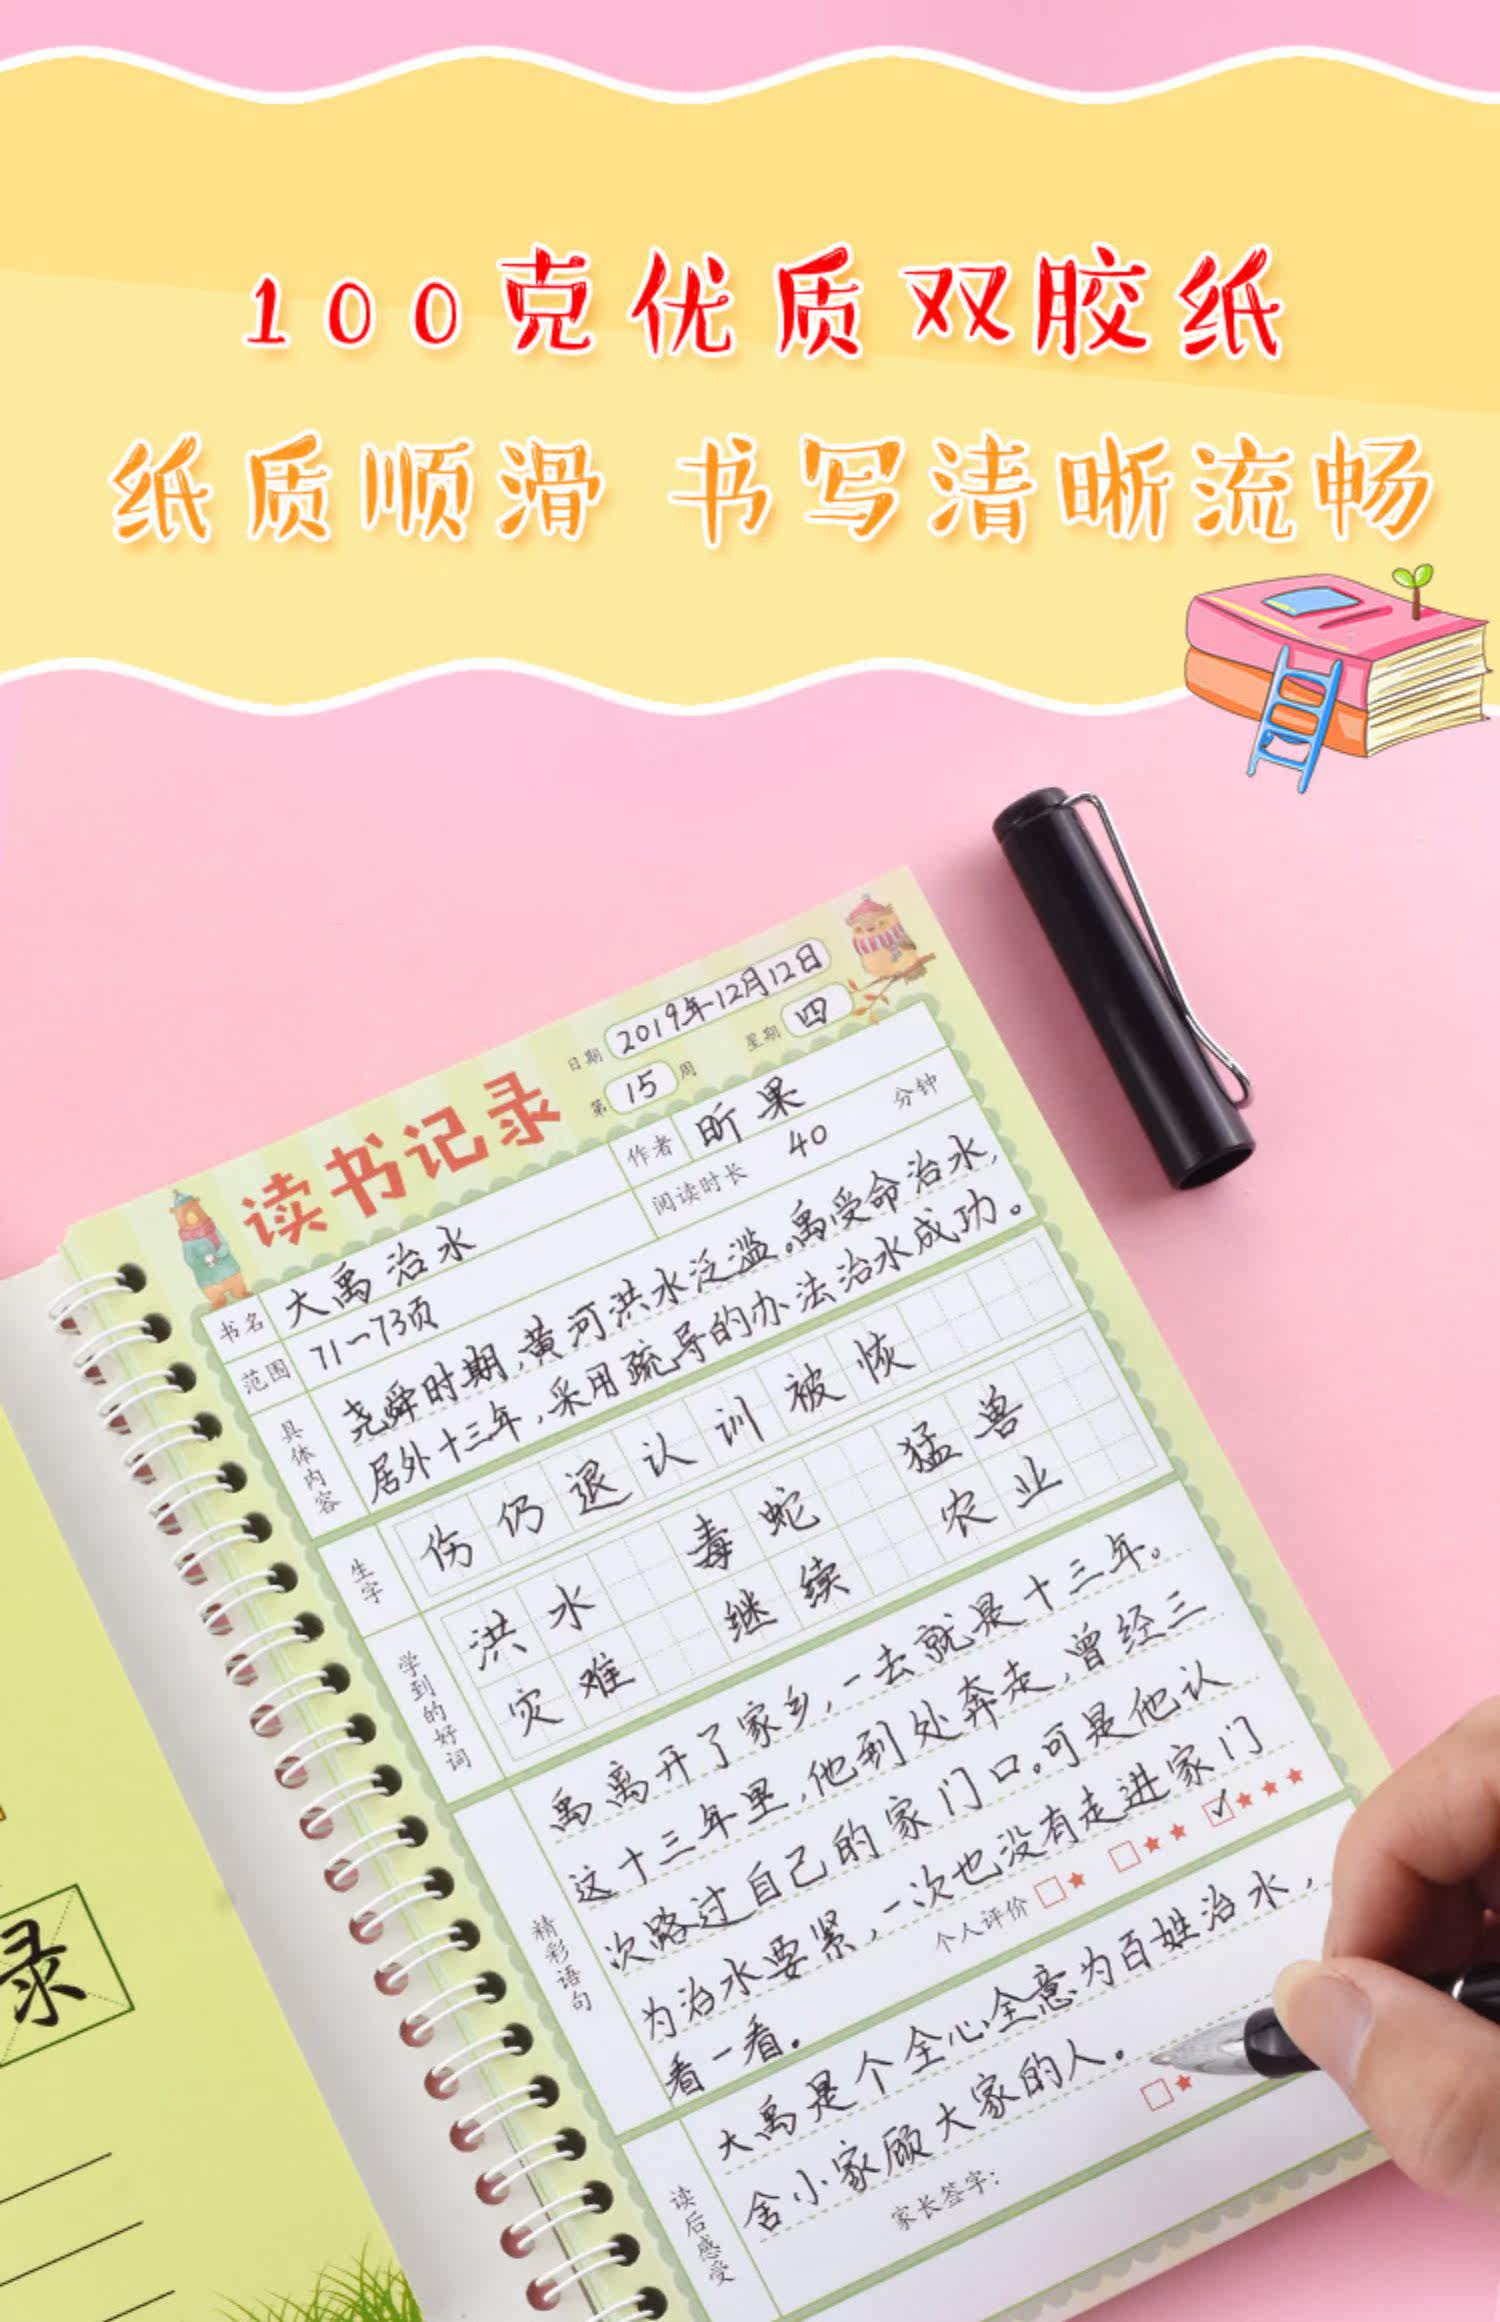 100克优质双胶纸
纸质顺滑 书写清晰流畅
日期 2019年12月12日
第 15 周 星期 四
读书记录
书名 大禹治水 作者 昕果
范围 71-73页 阅读时长 40 分钟
具体内容
尧舜时期,黄河洪水泛滥。禹受命治水,
居外十三年,采用疏导的办法治水成功。
生字 伤仍退认训被恢
学到的好词
洪水 毒蛇 猛兽
灾难 继续 农业
精彩语句
禹离开了家乡,一去就是十三年。
这十三年里,他到处奔走,曾经三
次路过自己的家门口。可是他认
为治水要紧,一次也没有走进家门
看一看。
个人评价 □★ □★★ ☑★★★
读后感受
大禹是个全心全意为百姓治水,
舍小家顾大家的人。
□★
家长签字:
录